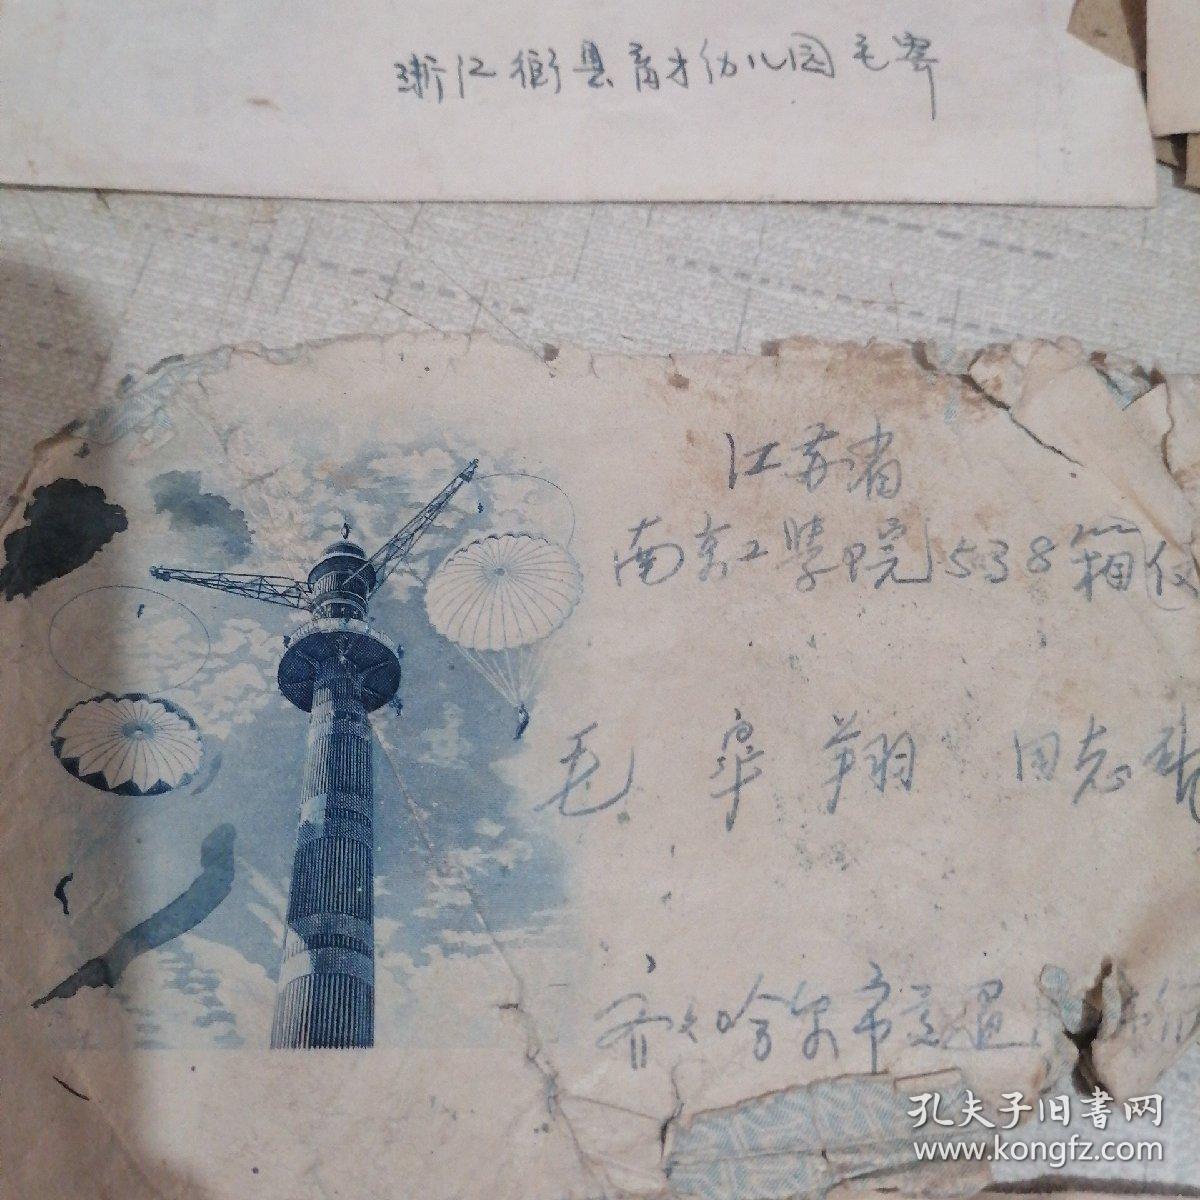 浙江衢县育才幼儿园毛
江苏省
南京工学院538箱
毛 翔 同志
齐齐哈尔市
孔夫子旧書网
www.kongfz.com